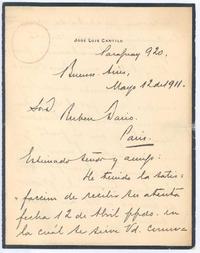 JOSÉ LUIS CANTILO
Paraguay 920.
Buenos Aires,
Mayo 12 de 1911.
Sr. D.
Ruben Dario.
Paris.
Estimado Señor y amigo:
He tenido la satis-
faccion de recibir su atenta
fecha 12 de Abril ppdo. en
la cuál se sirve Vd.